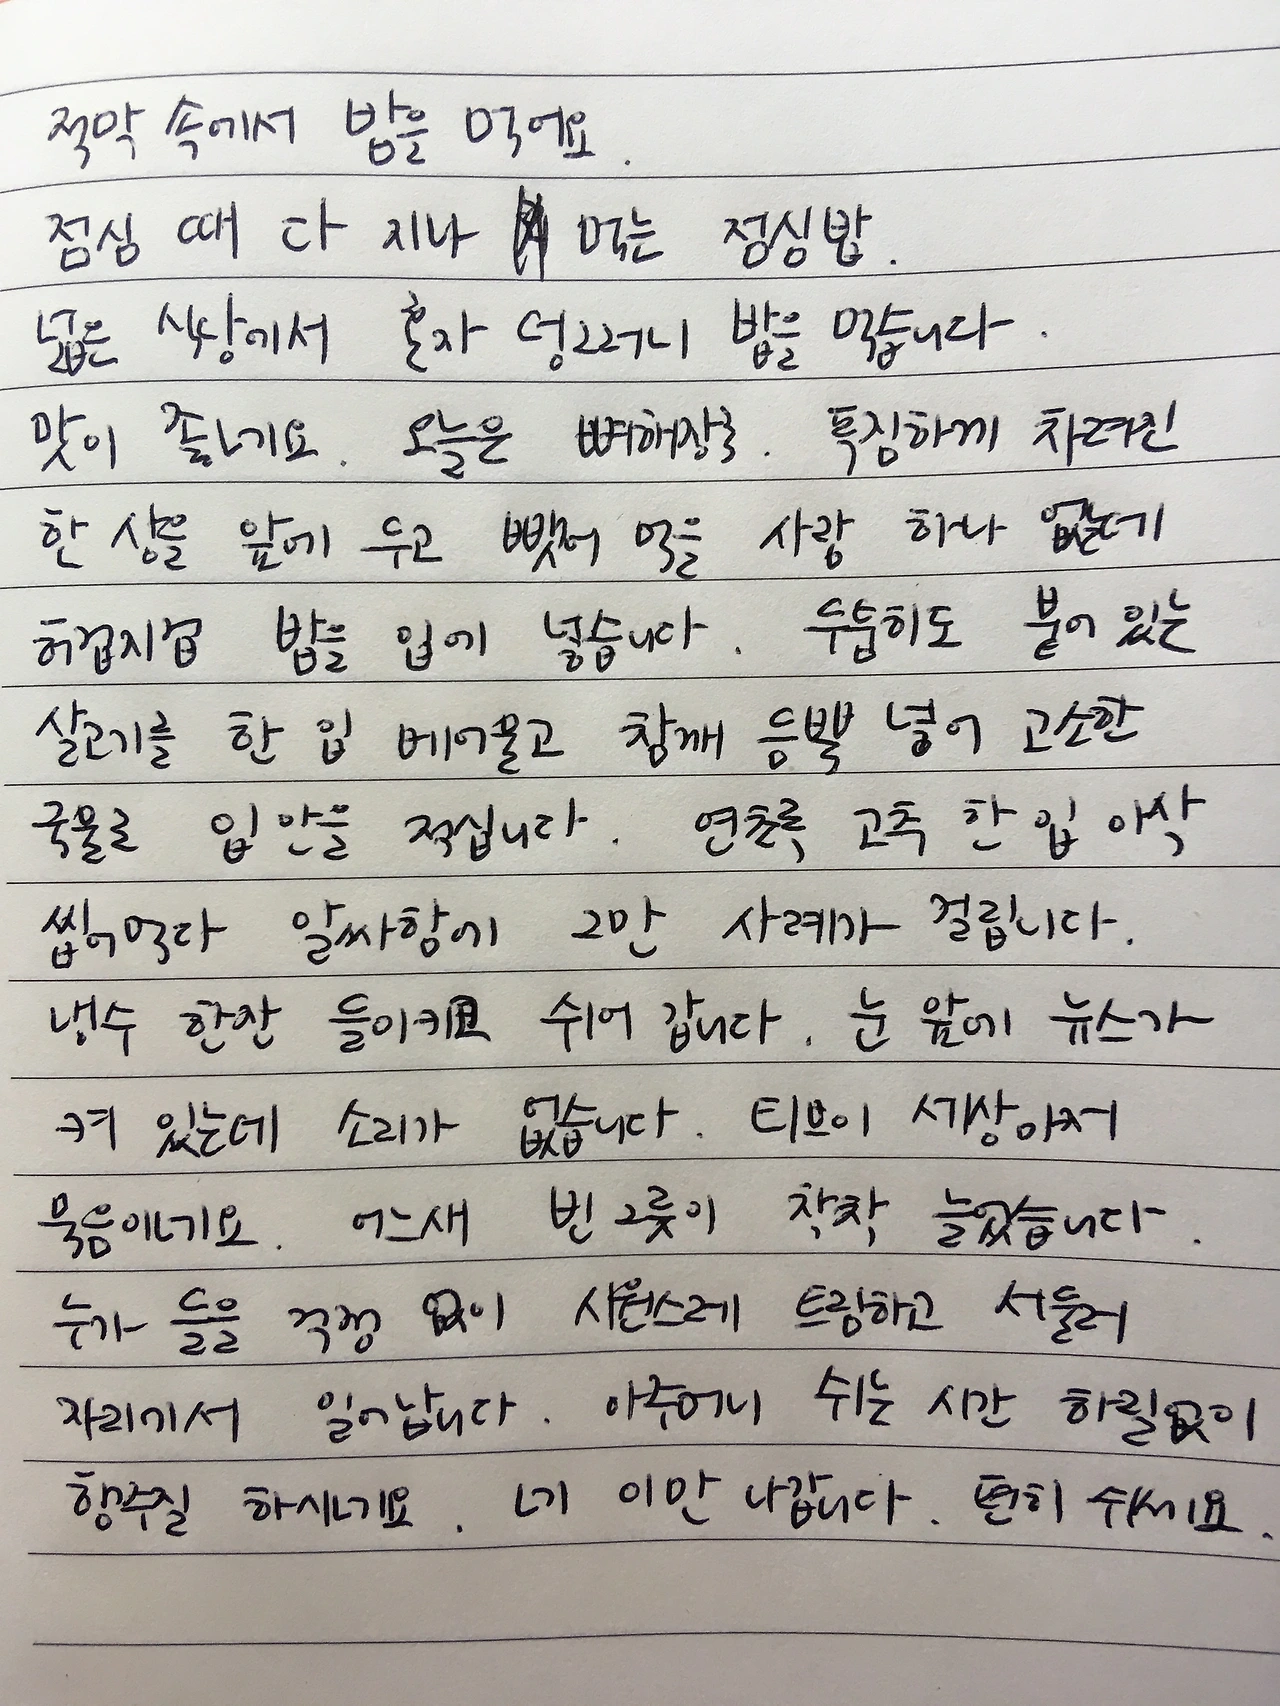 적막 속에서 밥을 먹어요.
점심 때 다 지나 먹는 점심밥.
넓은 식당에서 혼자 덩그러니 밥을 먹습니다.
맛이 좋네요. 오늘은 뼈해장국. 특집하게 차려진
한 상을 앞에 두고 뺏어 먹을 사람 하나 없는데
허겁지겁 밥을 입에 넣습니다. 두툼히도 붙어 있는
살코기를 한 입 베어물고 참깨 듬뿍 넣어 고소한
국물로 입 안을 적십니다. 연초록 고추 한 입 아삭
씹어먹다 알싸함에 그만 사레가 걸립니다.
냉수 한잔 들이키고 쉬어 갑니다. 눈 앞에 뉴스가
켜 있는데 소리가 없습니다. 티브이 세상마저
묵음이네요. 어느새 빈 그릇이 착착 늘었습니다.
누가 들을 걱정 없이 시원스레 트림하고 서둘러
자리에서 일어납니다. 아주머니 쉬는 시간 하릴없이
행주질 하시네요. 네 이만 나갑니다. 편히 쉬세요.